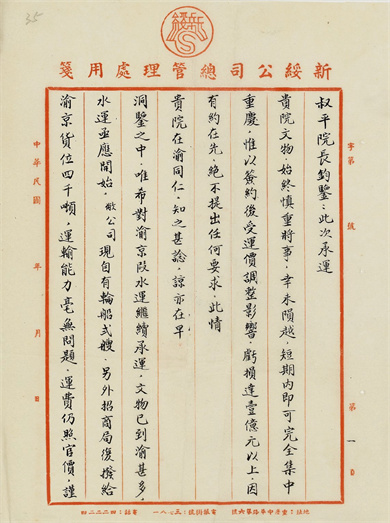 35
新綏
新綏公司總管理處用箋
字第 號
第一頁
叔平院長鈞鑒：此次承運
貴院文物，始終慎重將事，幸未隕越，短期內即可完全集中
重慶，惟以簽約後受運價調整影響，虧損達壹億元以上，因
有約在先，絕不提出任何要求，此情
貴院在渝同仁，知之甚稔，諒亦在早
洞鑒之中，唯希對渝京段水運繼續承運，文物已到渝甚多，
水運亟應開始，敝公司現自有輪船弍艘，另外招商局復撥給
渝京貨位四千噸，運輸能力毫無問題，運費仍照官價，謹
中華民國 年 月 日